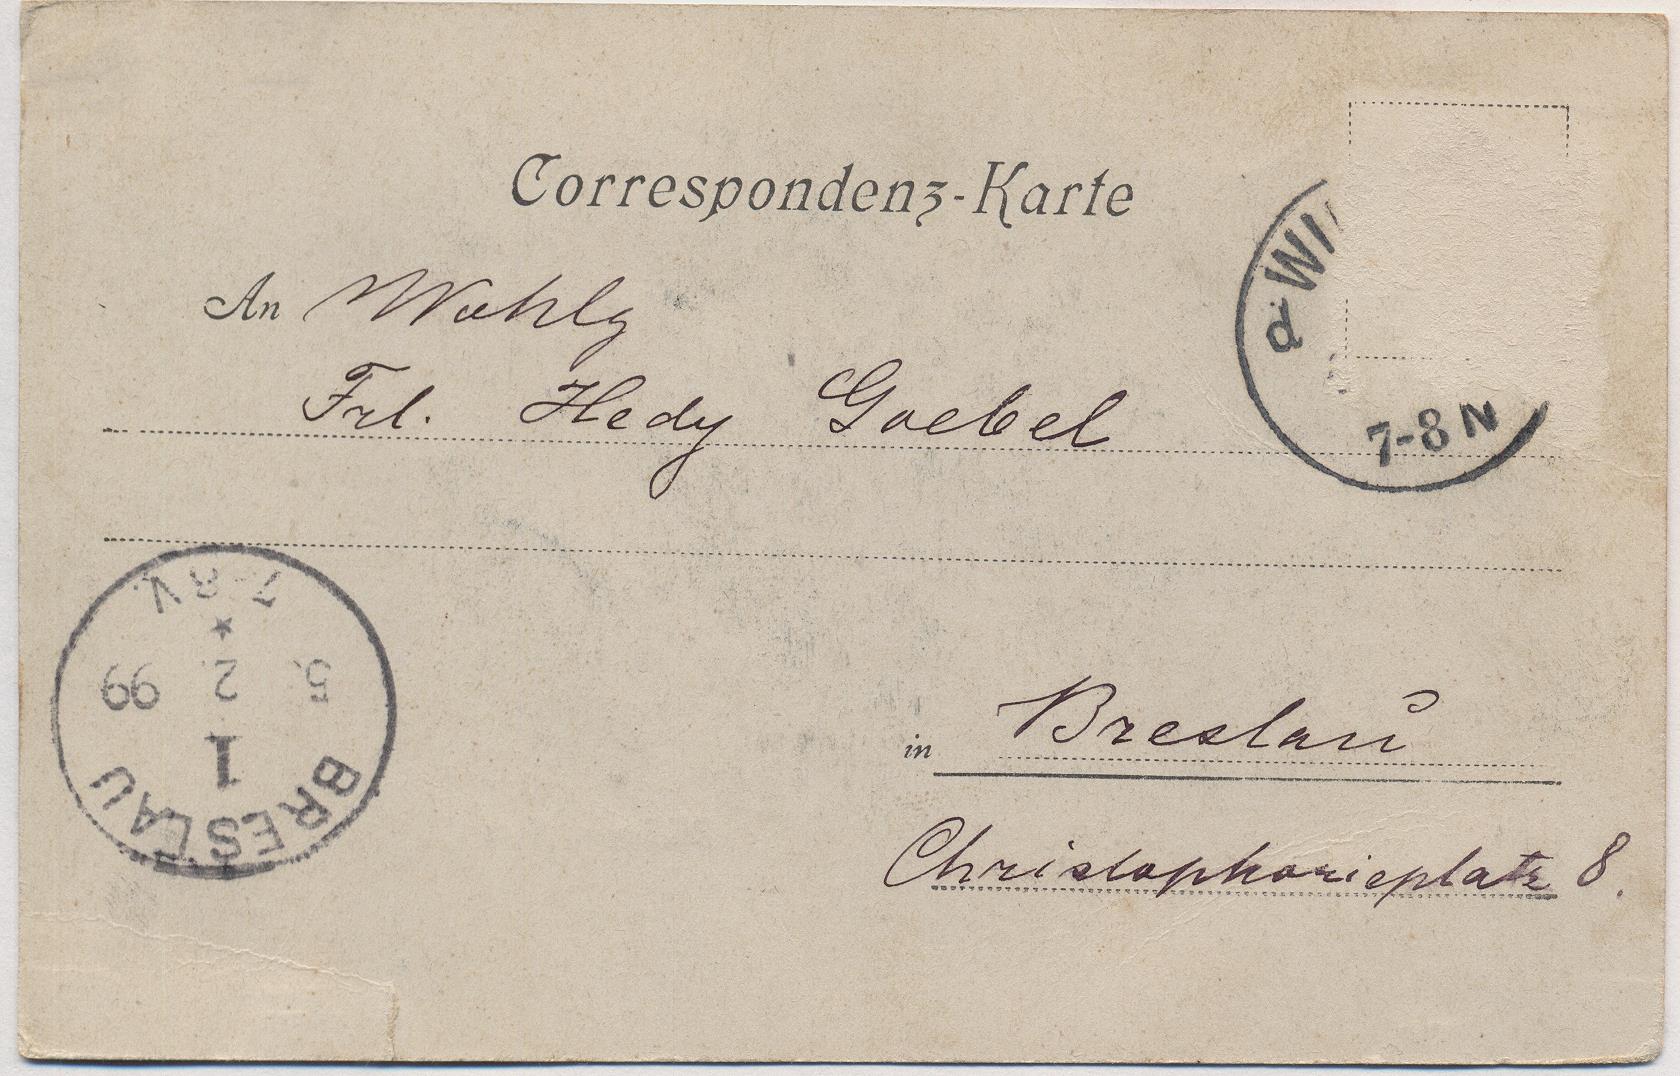 Correspondenz-Karte
An Wohlg
Frl. Hedy Goebel
in Breslau
Christophorieplatz 8.
WI
7-8 N
BRESLAU
1
5. 2. 99
7-8V.